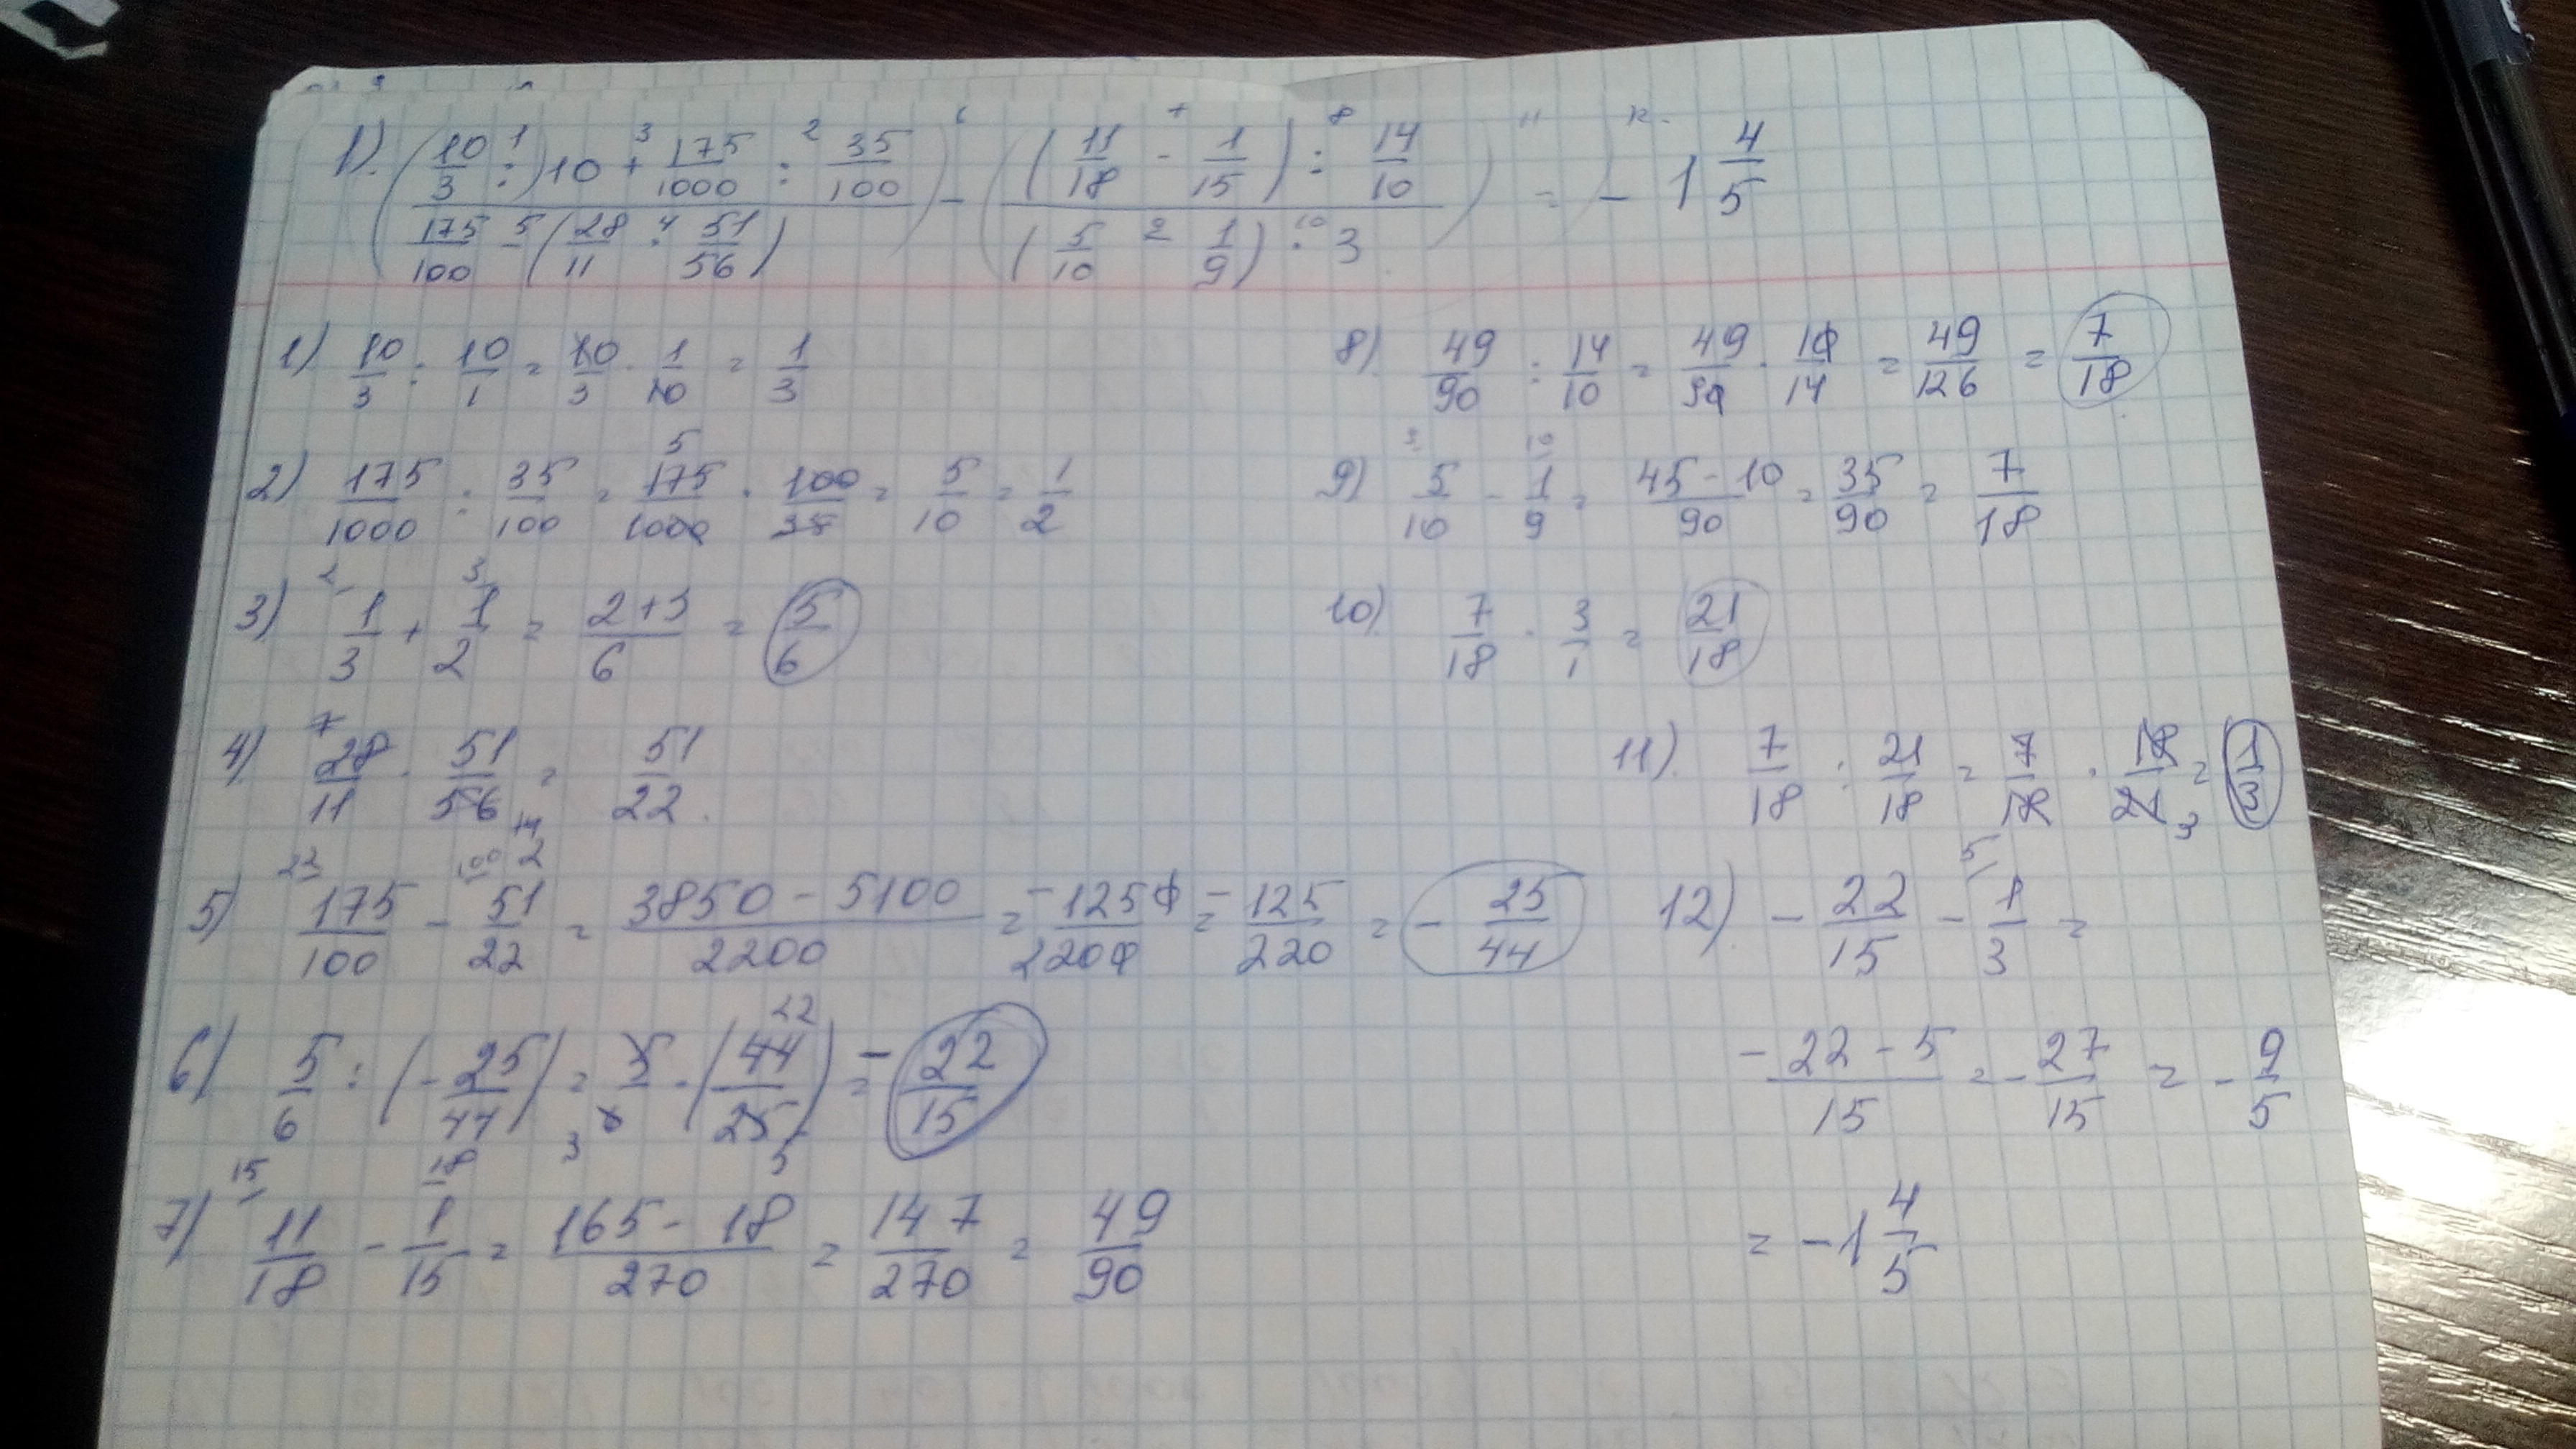 1). ( (10/3 : 10 + 175/1000 : 35/100) / (175/100 - (28/11 · 51/56)) ) - ( ((11/18 - 1/15) : 14/10) / ((5/10 - 1/9) · 3) ) = - 1 4/5
1) 10/3 : 10/1 = 10/3 · 1/10 = 1/3
2) 175/1000 : 35/100 = 175/1000 · 100/35 = 5/10 = 1/2
3) 1/3 + 1/2 = (2+3)/6 = 5/6
4) 28/11 · 51/56 = 51/22.
5) 175/100 - 51/22 = (3850 - 5100)/2200 = -1250/2200 = -125/220 = - 25/44
6) 5/6 : (- 25/44) = 5/6 · (44/25) = - 22/15
7) 11/18 - 1/15 = (165 - 18)/270 = 147/270 = 49/90
8). 49/90 : 14/10 = 49/90 · 10/14 = 49/126 = 7/18
9) 5/10 - 1/9 = (45 - 10)/90 = 35/90 = 7/18
10) 7/18 · 3/1 = 21/18
11). 7/18 : 21/18 = 7/18 · 18/21 = 1/3
12) - 22/15 - 1/3 =
(-22 - 5)/15 = - 27/15 = - 9/5
= -1 4/5